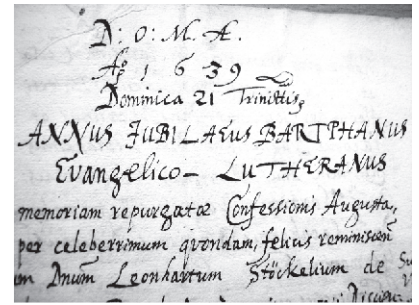 D: O: M. Æ.
Aº 1 6 39
Dominica 21 Trinittis,
ANNUS JUBILAEUS BARTPHANUS
Evangelico- LUTHERANUS
memoriam repurgatæ Confessionis Augusta,
per celeberrimum qvondam, felicis reminiscen
m Dnum Leonhartum Stöckelium de